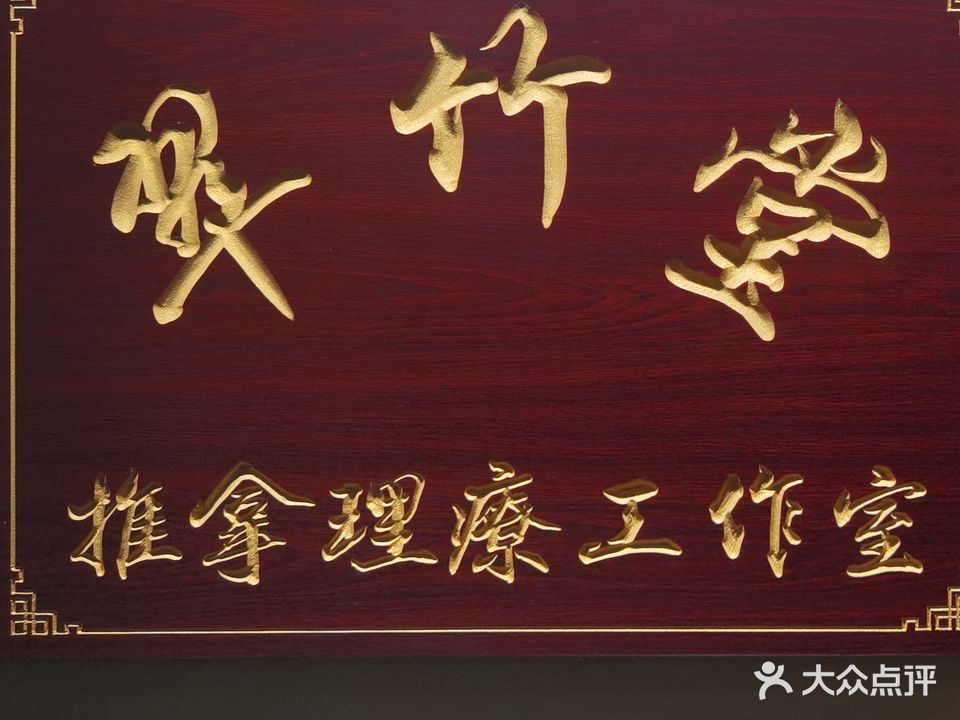 翠竹
推拿理療工作室
大众点评